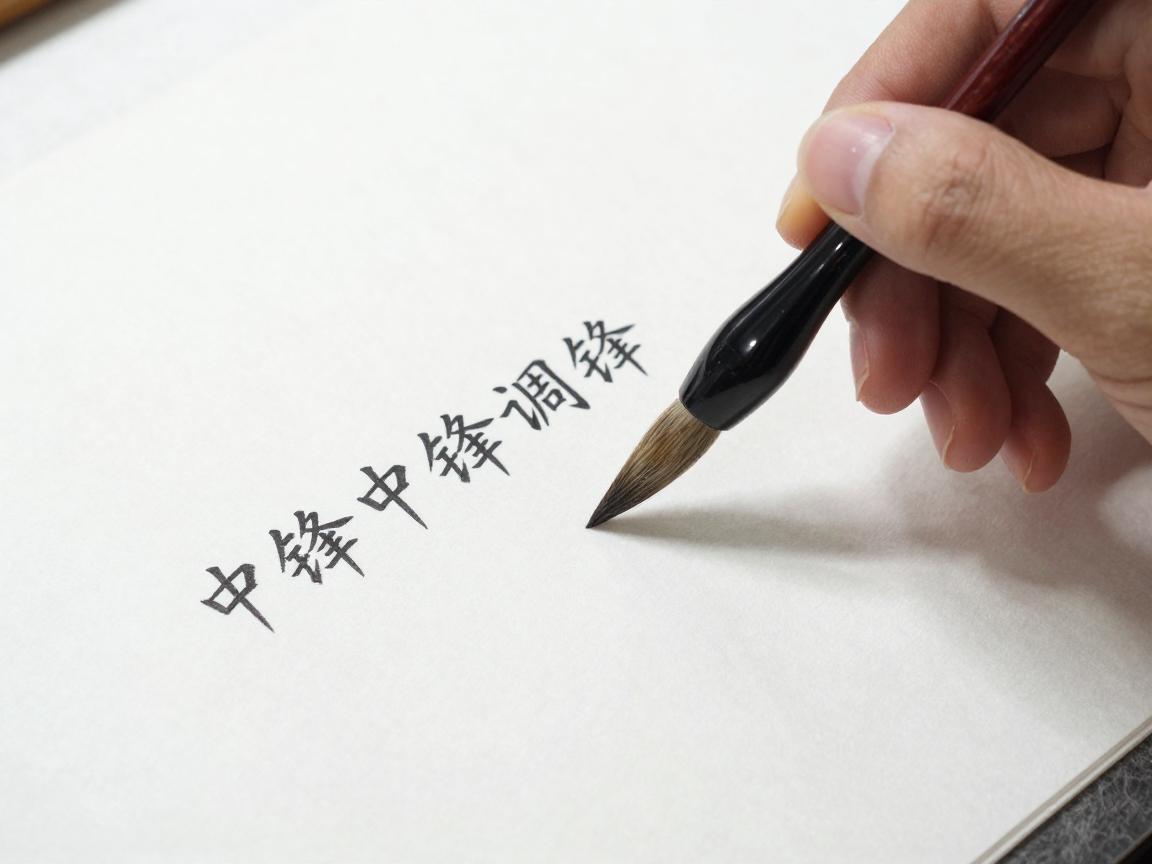 中锋中锋调锋